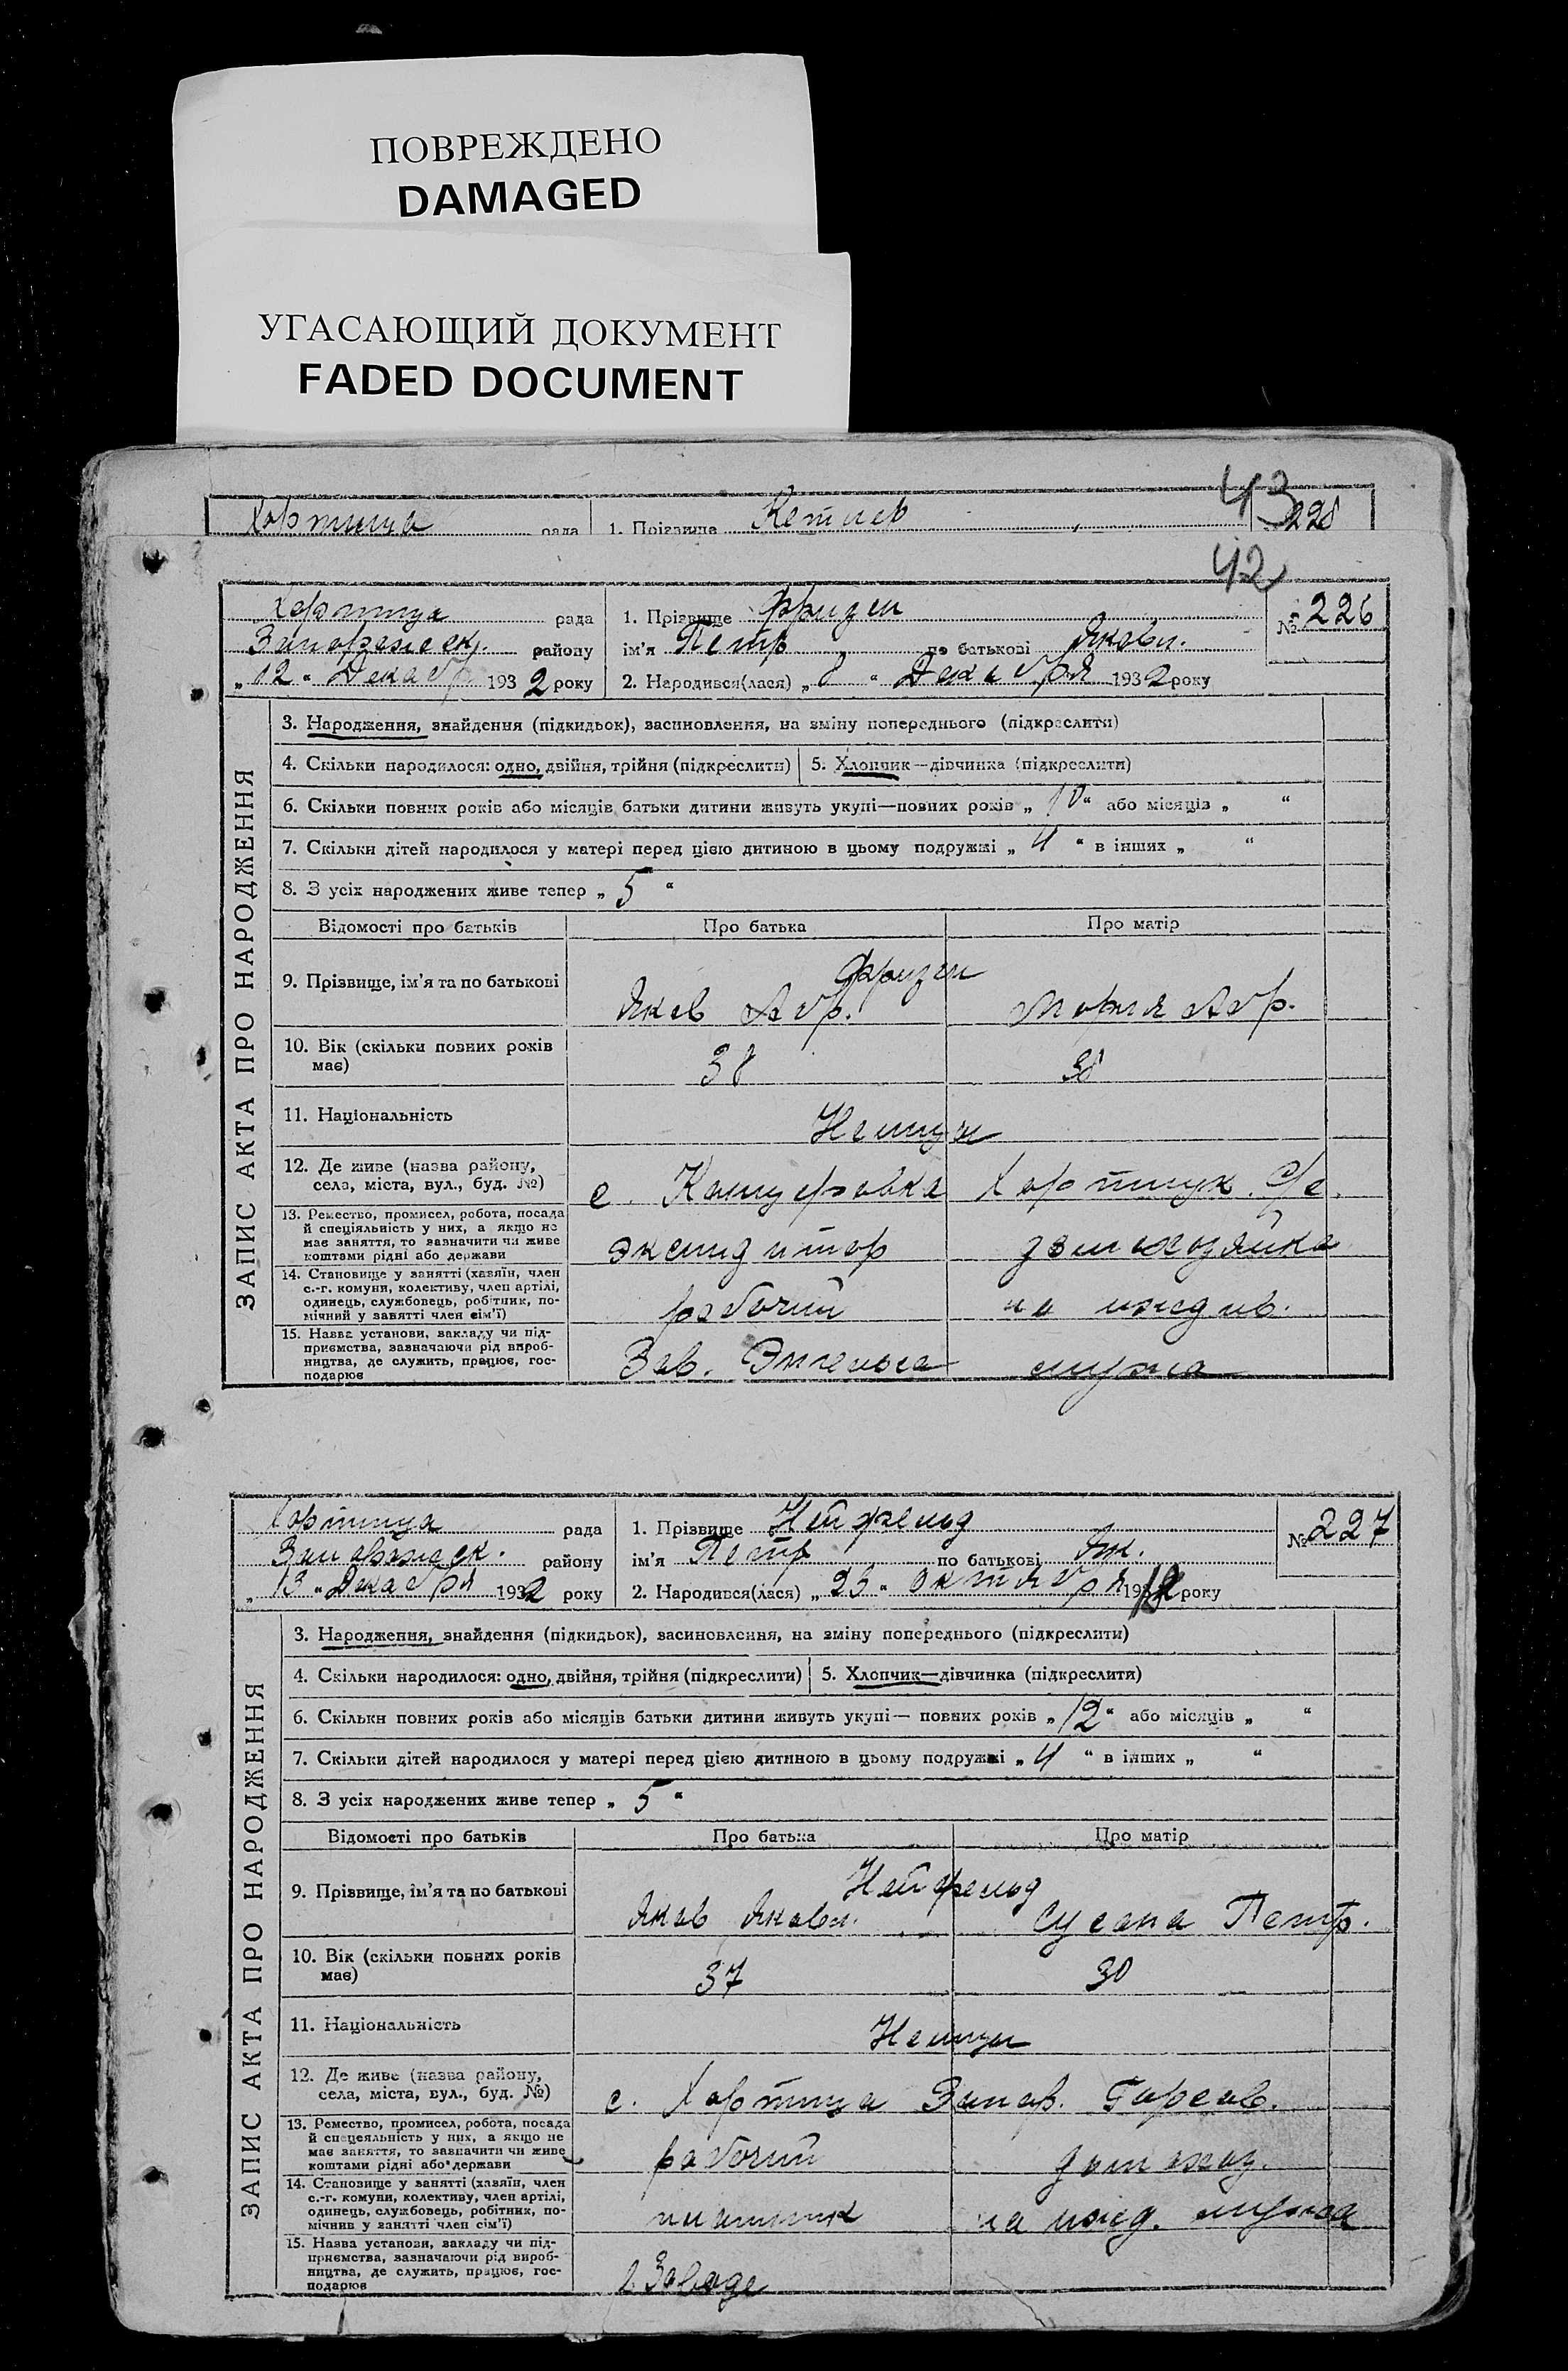 ПОВРЕЖДЕНО
DAMAGED
УГАСАЮЩИЙ ДОКУМЕНТ
FADED DOCUMENT
43
Хортица рада 1. Прізвище 228
42
Хортица рада 1. Прізвище Фризен № 226
Запорожск. району ім'я Петр по батькові Яковл.
„12“ Декабр 1932 року 2. Народився(лася) „8“ Декабря 1932 року
ЗАПИС АКТА ПРО НАРОДЖЕННЯ
3. Народження, знайдення (підкидьок), засиновлення, на зміну попереднього (підкреслити)
4. Скільки народилося: одно, двійня, трійня (підкреслити) 5. Хлопчик—дівчинка (підкреслити)
6. Скільки повних років або місяців батьки дитини живуть укупі—повних років „10“ або місяців „ “
7. Скільки дітей народилося у матері перед цією дитиною в цьому подружжі „4“ в інших „ “
8. З усіх народжених живе тепер „5“
Відомості про батьків Про батька Про матір
9. Прізвище, ім'я та по батькові Фризен
Яков Абр. Мария Абр.
10. Вік (скільки повних років
має) 38 38
11. Національність Немцы
12. Де живе (назва району,
села, міста, вул., буд. №) с. Канцеровка Хортицк. С/с.
13. Ремество, промисел, робота, посада
й спеціяльність у них, а якщо не
має заняття, то зазначити чи живе
коштами рідні або держави экспедитор домохозяйка
14. Становище у занятті (хазяїн, член
с.-г. комуни, колективу, член артілі,
одинець, службовець, робітник, по-
мічний у занятті член сім'ї) рабочий на иждив.
15. Назва установи, закладу чи під-
приємства, зазначаючи рід вироб-
ництва, де служить, працює, гос-
подарює Зав. Энгельса мужа
Хортица рада 1. Прізвище Нейфельд № 227
Запорожск. району ім'я Петр по батькові Як.
„13“ Декабря 1932 року 2. Народився(лася) „23“ Октября 1932 року
ЗАПИС АКТА ПРО НАРОДЖЕННЯ
3. Народження, знайдення (підкидьок), засиновлення, на зміну попереднього (підкреслити)
4. Скільки народилося: одно, двійня, трійня (підкреслити) 5. Хлопчик—дівчинка (підкреслити)
6. Скільки повних років або місяців батьки дитини живуть укупі— повних років „12“ або місяців „ “
7. Скільки дітей народилося у матері перед цією дитиною в цьому подружжі „4“ в інших „ “
8. З усіх народжених живе тепер „5“
Відомості про батьків Про батька Про матір
9. Прізвище, ім'я та по батькові Нейфельд
Яков Яковл. Сусана Петр.
10. Вік (скільки повних років
має) 37 30
11. Національність Немцы
12. Де живе (назва району,
села, міста, вул., буд. №) с. Хортица Запор. Горсов.
13. Ремество, промисел, робота, посада
й спецеяльність у них, а якщо не
має заняття, то зазначити чи живе
коштами рідні або держави рабочий домохоз.
14. Становище у занятті (хазяїн, член
с.-г. комуни, колективу, член артілі,
одинець, службовець, робітник, по-
мічник у занятті член сім'ї) на ижд. мужа
15. Назва установи, закладу чи під-
приємства, зазначаючи рід вироб-
ництва, де служить, працює, гос-
подарює Заводе